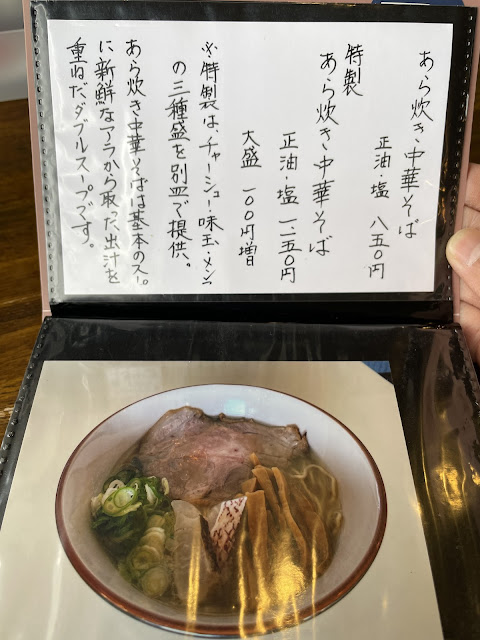 あら炊き中華そば
正油・塩 八五〇円
特製
あら炊き中華そば
正油・塩 一一五〇円
大盛 一〇〇円増
※特製は、チャーシュー・味玉・メンマ
の三種盛を別皿で提供。
あら炊き中華そばは基本のスープ
に新鮮なアラから取った出汁を
重ねたダブルスープです。